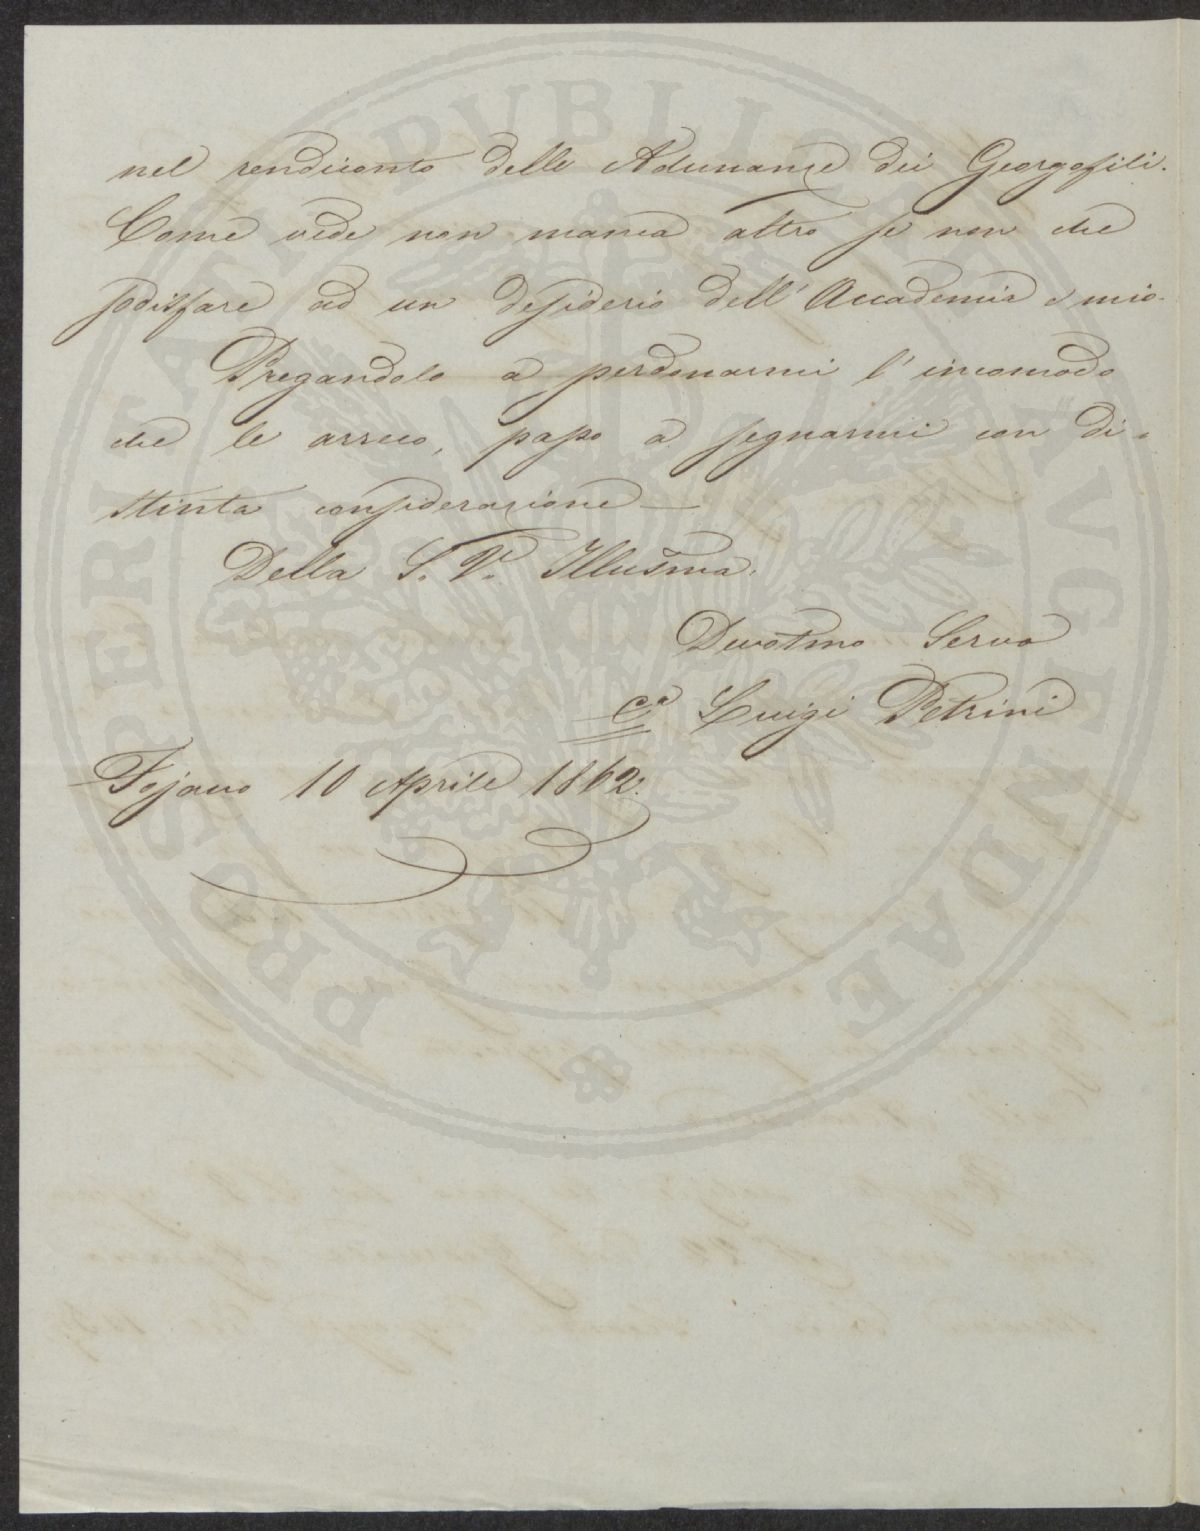 nel rendiconto delle Adunanze dei Georgofili.
Come vede non manca altro se non che
sodisfare ad un desiderio dell'Accademia e mio.
Pregandolo a perdonarmi l'incomodo
che le arreco, passo a segnarmi con di=
stinta considerazione —
Della S. V. Illusma.
Devotmo Servo
Luigi Petrini
Fojano 10 Aprile 1862.
PROSPERITATI PUBLICAE AVGENDAE